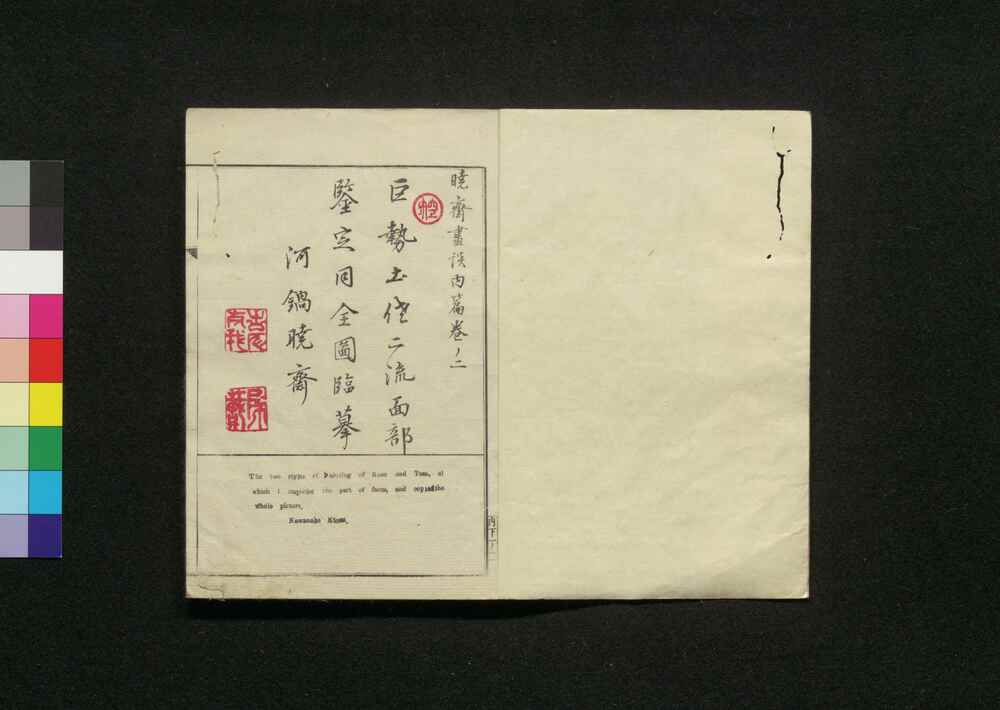 暁齋畫談内篇巻ノ二
巨勢土佐二流面部
鑒定同全圖臨摹
河鍋暁齋
The two styles of Painting of Kose and Tosa, of
which I inquire the part of faces, and copied the
whole picture,
Kawanabe Kiosai,
内下ノ一